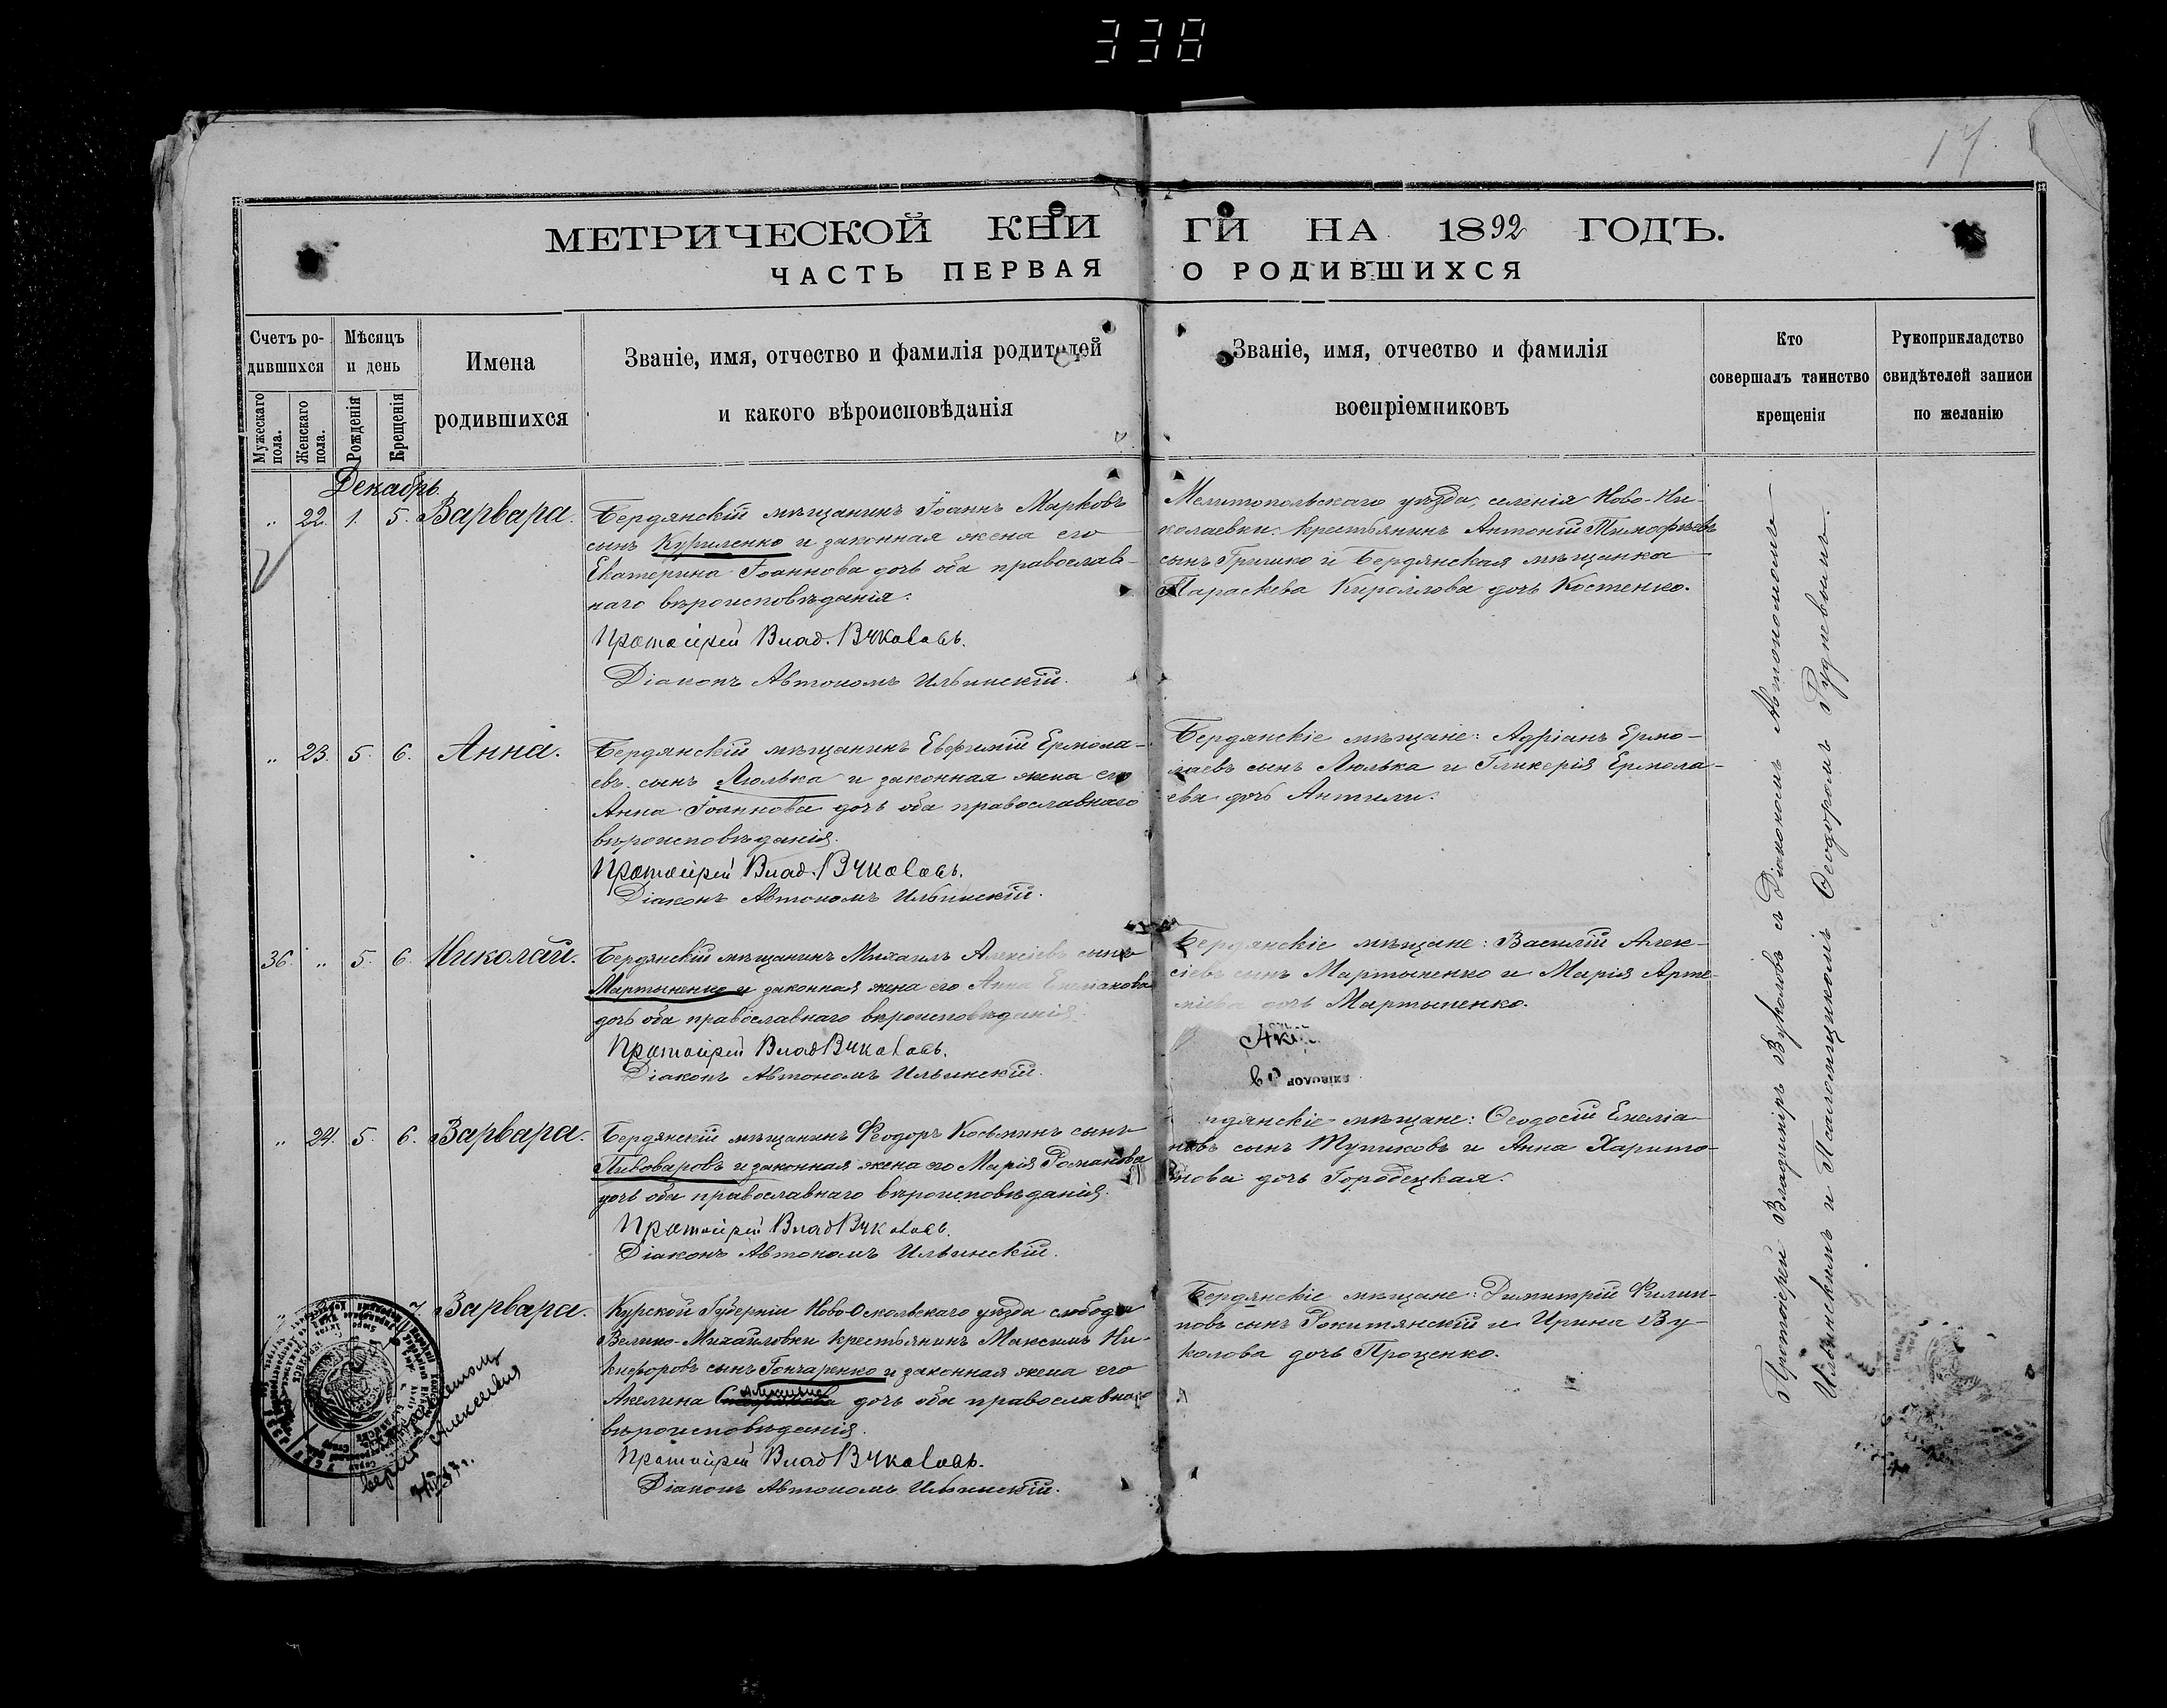 338
17
МЕТРИЧЕСКОЙ КНИ ГИ НА 1892 ГОДЪ.
ЧАСТЬ ПЕРВАЯ О РОДИВШИХСЯ
Счетъ ро-
дившихся
Мужескаго
пола.
Женскаго
пола.
Мѣсяцъ
и день
Рожденія
Крещенія
Имена
родившихся
Званіе, имя, отчество и фамилія родителей
и какого вѣроисповѣданія
Званіе, имя, отчество и фамилія
воспріемниковъ
Кто
совершалъ таинство
крещенія
Рукоприкладство
свидѣтелей записи
по желанію
Декабрь.
„ 22. 1. 5. Варвара.
Бердянскій мѣщанинъ Іоаннъ Марковъ
сынъ Куриленко и законная жена его
Екатерина Іоаннова дочь оба православ-
наго вѣроисповѣданія.
Протоіерей Влад. Вуколовъ.
Діаконъ Автономъ Ильинскій.
Мелитопольскаго уѣзда, селенія Ново-Ни-
колаевки крестьянинъ Антоній Тимофѣевъ
сынъ Гришко и Бердянская мѣщанка
Параскева Кириллова дочь Костенко.
„ 23. 5. 6. Анна.
Бердянскій мѣщанинъ Евфимій Ермола-
евъ сынъ Люлька и законная жена его
Анна Іоаннова дочь оба православнаго
вѣроисповѣданія.
Протоіерей Влад. Вуколовъ.
Діаконъ Автономъ Ильинскій.
Бердянскіе мѣщане: Адріанъ Ермо-
лаевъ сынъ Люлька и Гликерія Ермола-
ева дочь
36. „ 5. 6. Николай.
Бердянскій мѣщанинъ Михаилъ Алексіевъ сынъ
Мартыненко и законная жена его Анна
дочь оба православнаго вѣроисповѣданія.
Протоіерей Влад Вуколовъ.
Діаконъ Автономъ Ильинскій.
Бердянскіе мѣщане: Василій Алек-
сіевъ сынъ Мартыненко и Марія Арте-
міева дочь Мартыненко.
„ 24. 5. 6. Варвара.
Бердянскій мѣщанинъ Ѳеодоръ Косьминъ сынъ
Пивоваровъ и законная жена его Марія Романова
дочь оба православнаго вѣроисповѣданія.
Протоіерей Влад Вуколовъ.
Діаконъ Автономъ Ильинскій.
рдянскіе мѣщане: Ѳеодосій Емеліа-
новъ сынъ Тупиковъ и Анна Харито-
нова дочь Городецкая.
7. Варвара.
Курской Губерніи Ново-Оскольскаго уѣзда слободы
Велико-Михайловки крестьянинъ Максимъ Ни-
кифоровъ сынъ Гончаренко и законная жена его
Акелина дочь оба православнаго
вѣроисповѣданія.
Протоіерей Влад Вуколовъ.
Діаконъ Автономъ Ильинскій.
Бердянскіе мѣщане: Димитрій Филип-
повъ сынъ Рокитянскій и Ирина Ву-
колова дочь Проценко.
Протоіерей Владиміръ Вуколовъ съ Діакономъ Автономомъ
Ильинскимъ и Псаломщикомъ Ѳеодоромъ Рудневымъ.